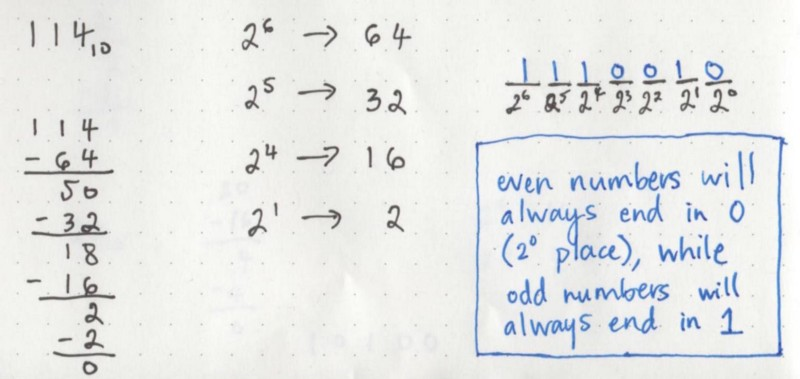 114₁₀
114
- 64
50
- 32
18
- 16
2
- 2
0
2⁶ → 64
2⁵ → 32
2⁴ → 16
2¹ → 2
1 1 1 0 0 1 0
2⁶ 2⁵ 2⁴ 2³ 2² 2¹ 2⁰
even numbers will
always end in 0
(2⁰ place), while
odd numbers will
always end in 1